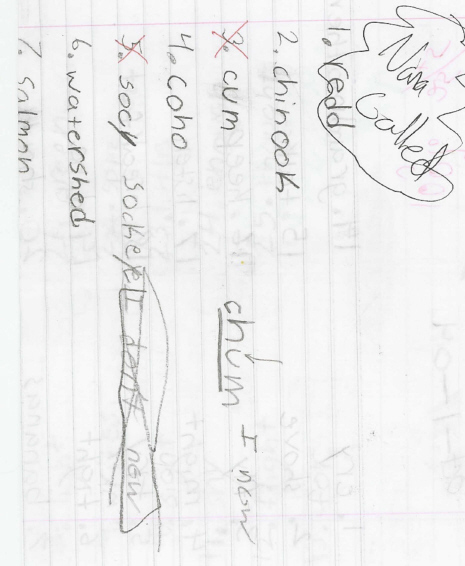 Nim
Galled
1. redd
2. chinook
3. cum chum I now
4. coho
5. socy sockeye I don't now
6. watershed
7. salmon